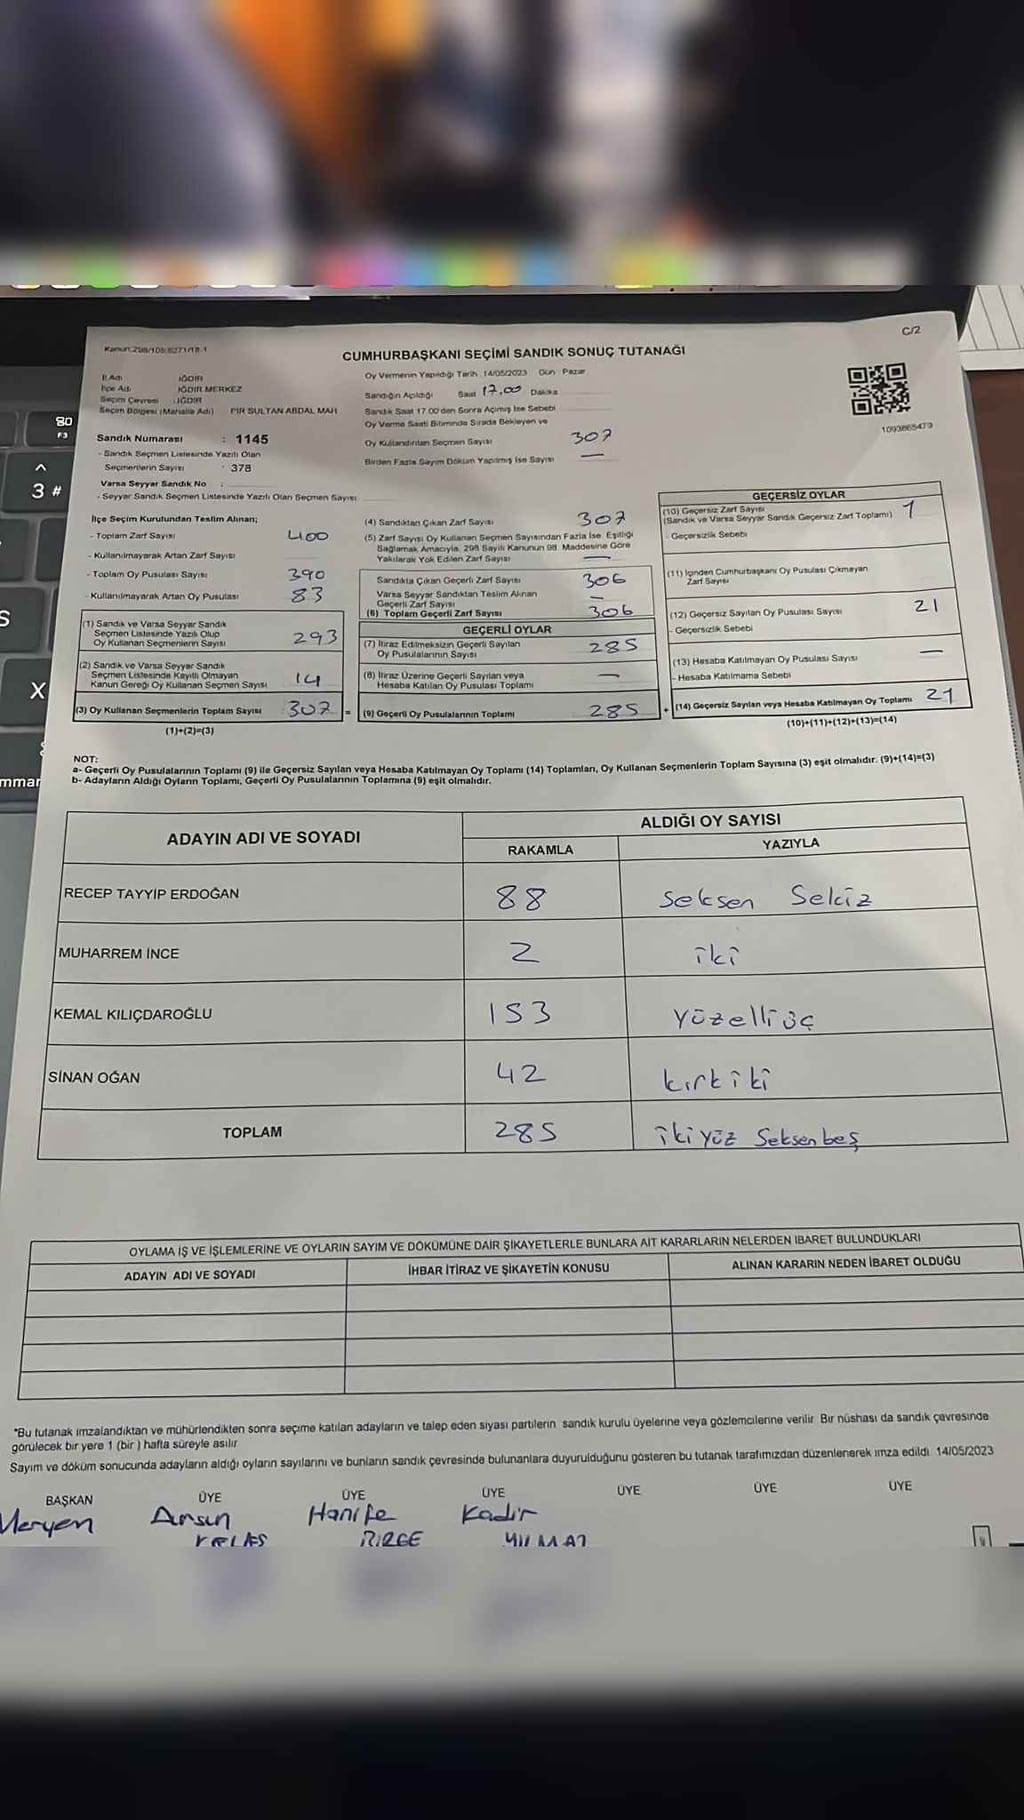 C/2
Kanun:298/106:6271/18-1
CUMHURBAŞKANI SEÇİMİ SANDIK SONUÇ TUTANAĞI
İl Adı : IĞDIR
İlçe Adı : IĞDIR MERKEZ
Seçim Çevresi : IĞDIR
Seçim Bölgesi (Mahalle Adı) PİR SULTAN ABDAL MAH
Sandık Numarası : 1145
- Sandık Seçmen Listesinde Yazılı Olan
Seçmenlerin Sayısı : 378
Varsa Seyyar Sandık No :
- Seyyar Sandık Seçmen Listesinde Yazılı Olan Seçmen Sayısı
Oy Vermenin Yapıldığı Tarih : 14/05/2023 Gün : Pazar
Sandığın Açıldığı Saat 17.00 Dakika
Sandık Saat 17.00 den Sonra Açılmış İse Sebebi
Oy Verme Saati Bitiminde Sırada Bekleyen ve
Oy Kullandırılan Seçmen Sayısı 307
Birden Fazla Sayım Döküm Yapılmış İse Sayısı —
1093865479
İlçe Seçim Kurulundan Teslim Alınan;
- Toplam Zarf Sayısı 400
- Kullanılmayarak Artan Zarf Sayısı
- Toplam Oy Pusulası Sayısı 390
- Kullanılmayarak Artan Oy Pusulası 83
(1) Sandık ve Varsa Seyyar Sandık
Seçmen Listesinde Yazılı Olup
Oy Kullanan Seçmenlerin Sayısı 293
(2) Sandık ve Varsa Seyyar Sandık
Seçmen Listesinde Kayıtlı Olmayan
Kanun Gereği Oy Kullanan Seçmen Sayısı 14
(3) Oy Kullanan Seçmenlerin Toplam Sayısı 307 =
(1)+(2)=(3)
(4) Sandıktan Çıkan Zarf Sayısı 307
(5) Zarf Sayısı Oy Kullanan Seçmen Sayısından Fazla İse, Eşitliği
Sağlamak Amacıyla, 298 Sayılı Kanunun 98. Maddesine Göre
Yakılarak Yok Edilen Zarf Sayısı —
Sandıkta Çıkan Geçerli Zarf Sayısı 306
Varsa Seyyar Sandıktan Teslim Alınan
Geçerli Zarf Sayısı —
(6) Toplam Geçerli Zarf Sayısı 306
GEÇERLİ OYLAR
(7) İtiraz Edilmeksizin Geçerli Sayılan
Oy Pusulalarının Sayısı 285
(8) İtiraz Üzerine Geçerli Sayılan veya
Hesaba Katılan Oy Pusulası Toplamı —
(9) Geçerli Oy Pusulalarının Toplamı 285 +
GEÇERSİZ OYLAR
(10) Geçersiz Zarf Sayısı
(Sandık ve Varsa Seyyar Sandık Geçersiz Zarf Toplamı) 1
- Geçersizlik Sebebi
(11) İçinden Cumhurbaşkanı Oy Pusulası Çıkmayan
Zarf Sayısı
(12) Geçersiz Sayılan Oy Pusulası Sayısı 21
- Geçersizlik Sebebi
(13) Hesaba Katılmayan Oy Pusulası Sayısı —
- Hesaba Katılmama Sebebi
(14) Geçersiz Sayılan veya Hesaba Katılmayan Oy Toplamı 21
(10)+(11)+(12)+(13)=(14)
NOT:
a- Geçerli Oy Pusulalarının Toplamı (9) ile Geçersiz Sayılan veya Hesaba Katılmayan Oy Toplamı (14) Toplamları, Oy Kullanan Seçmenlerin Toplam Sayısına (3) eşit olmalıdır. (9)+(14)=(3)
b- Adayların Aldığı Oyların Toplamı, Geçerli Oy Pusulalarının Toplamına (9) eşit olmalıdır.
ADAYIN ADI VE SOYADI ALDIĞI OY SAYISI
RAKAMLA YAZIYLA
RECEP TAYYİP ERDOĞAN 88 Seksen Sekiz
MUHARREM İNCE 2 iki
KEMAL KILIÇDAROĞLU 153 Yüzelliüç
SİNAN OĞAN 42 kırkiki
TOPLAM 285 ikiyüz Seksenbeş
OYLAMA İŞ VE İŞLEMLERİNE VE OYLARIN SAYIM VE DÖKÜMÜNE DAİR ŞİKAYETLERLE BUNLARA AİT KARARLARIN NELERDEN İBARET BULUNDUKLARI
ADAYIN ADI VE SOYADI İHBAR İTİRAZ VE ŞİKAYETİN KONUSU ALINAN KARARIN NEDEN İBARET OLDUĞU
*Bu tutanak imzalandıktan ve mühürlendikten sonra seçime katılan adayların ve talep eden siyasi partilerin sandık kurulu üyelerine veya gözlemcilerine verilir. Bir nüshası da sandık çevresinde
görülecek bir yere 1 (bir) hafta süreyle asılır
Sayım ve döküm sonucunda adayların aldığı oyların sayılarını ve bunların sandık çevresinde bulunanlara duyurulduğunu gösteren bu tutanak tarafımızdan düzenlenerek imza edildi. 14/05/2023
BAŞKAN ÜYE ÜYE ÜYE ÜYE ÜYE ÜYE
Meryem Hanife Kadir
BİRGE YILMAZ
80
F3
^
3 #
S
X